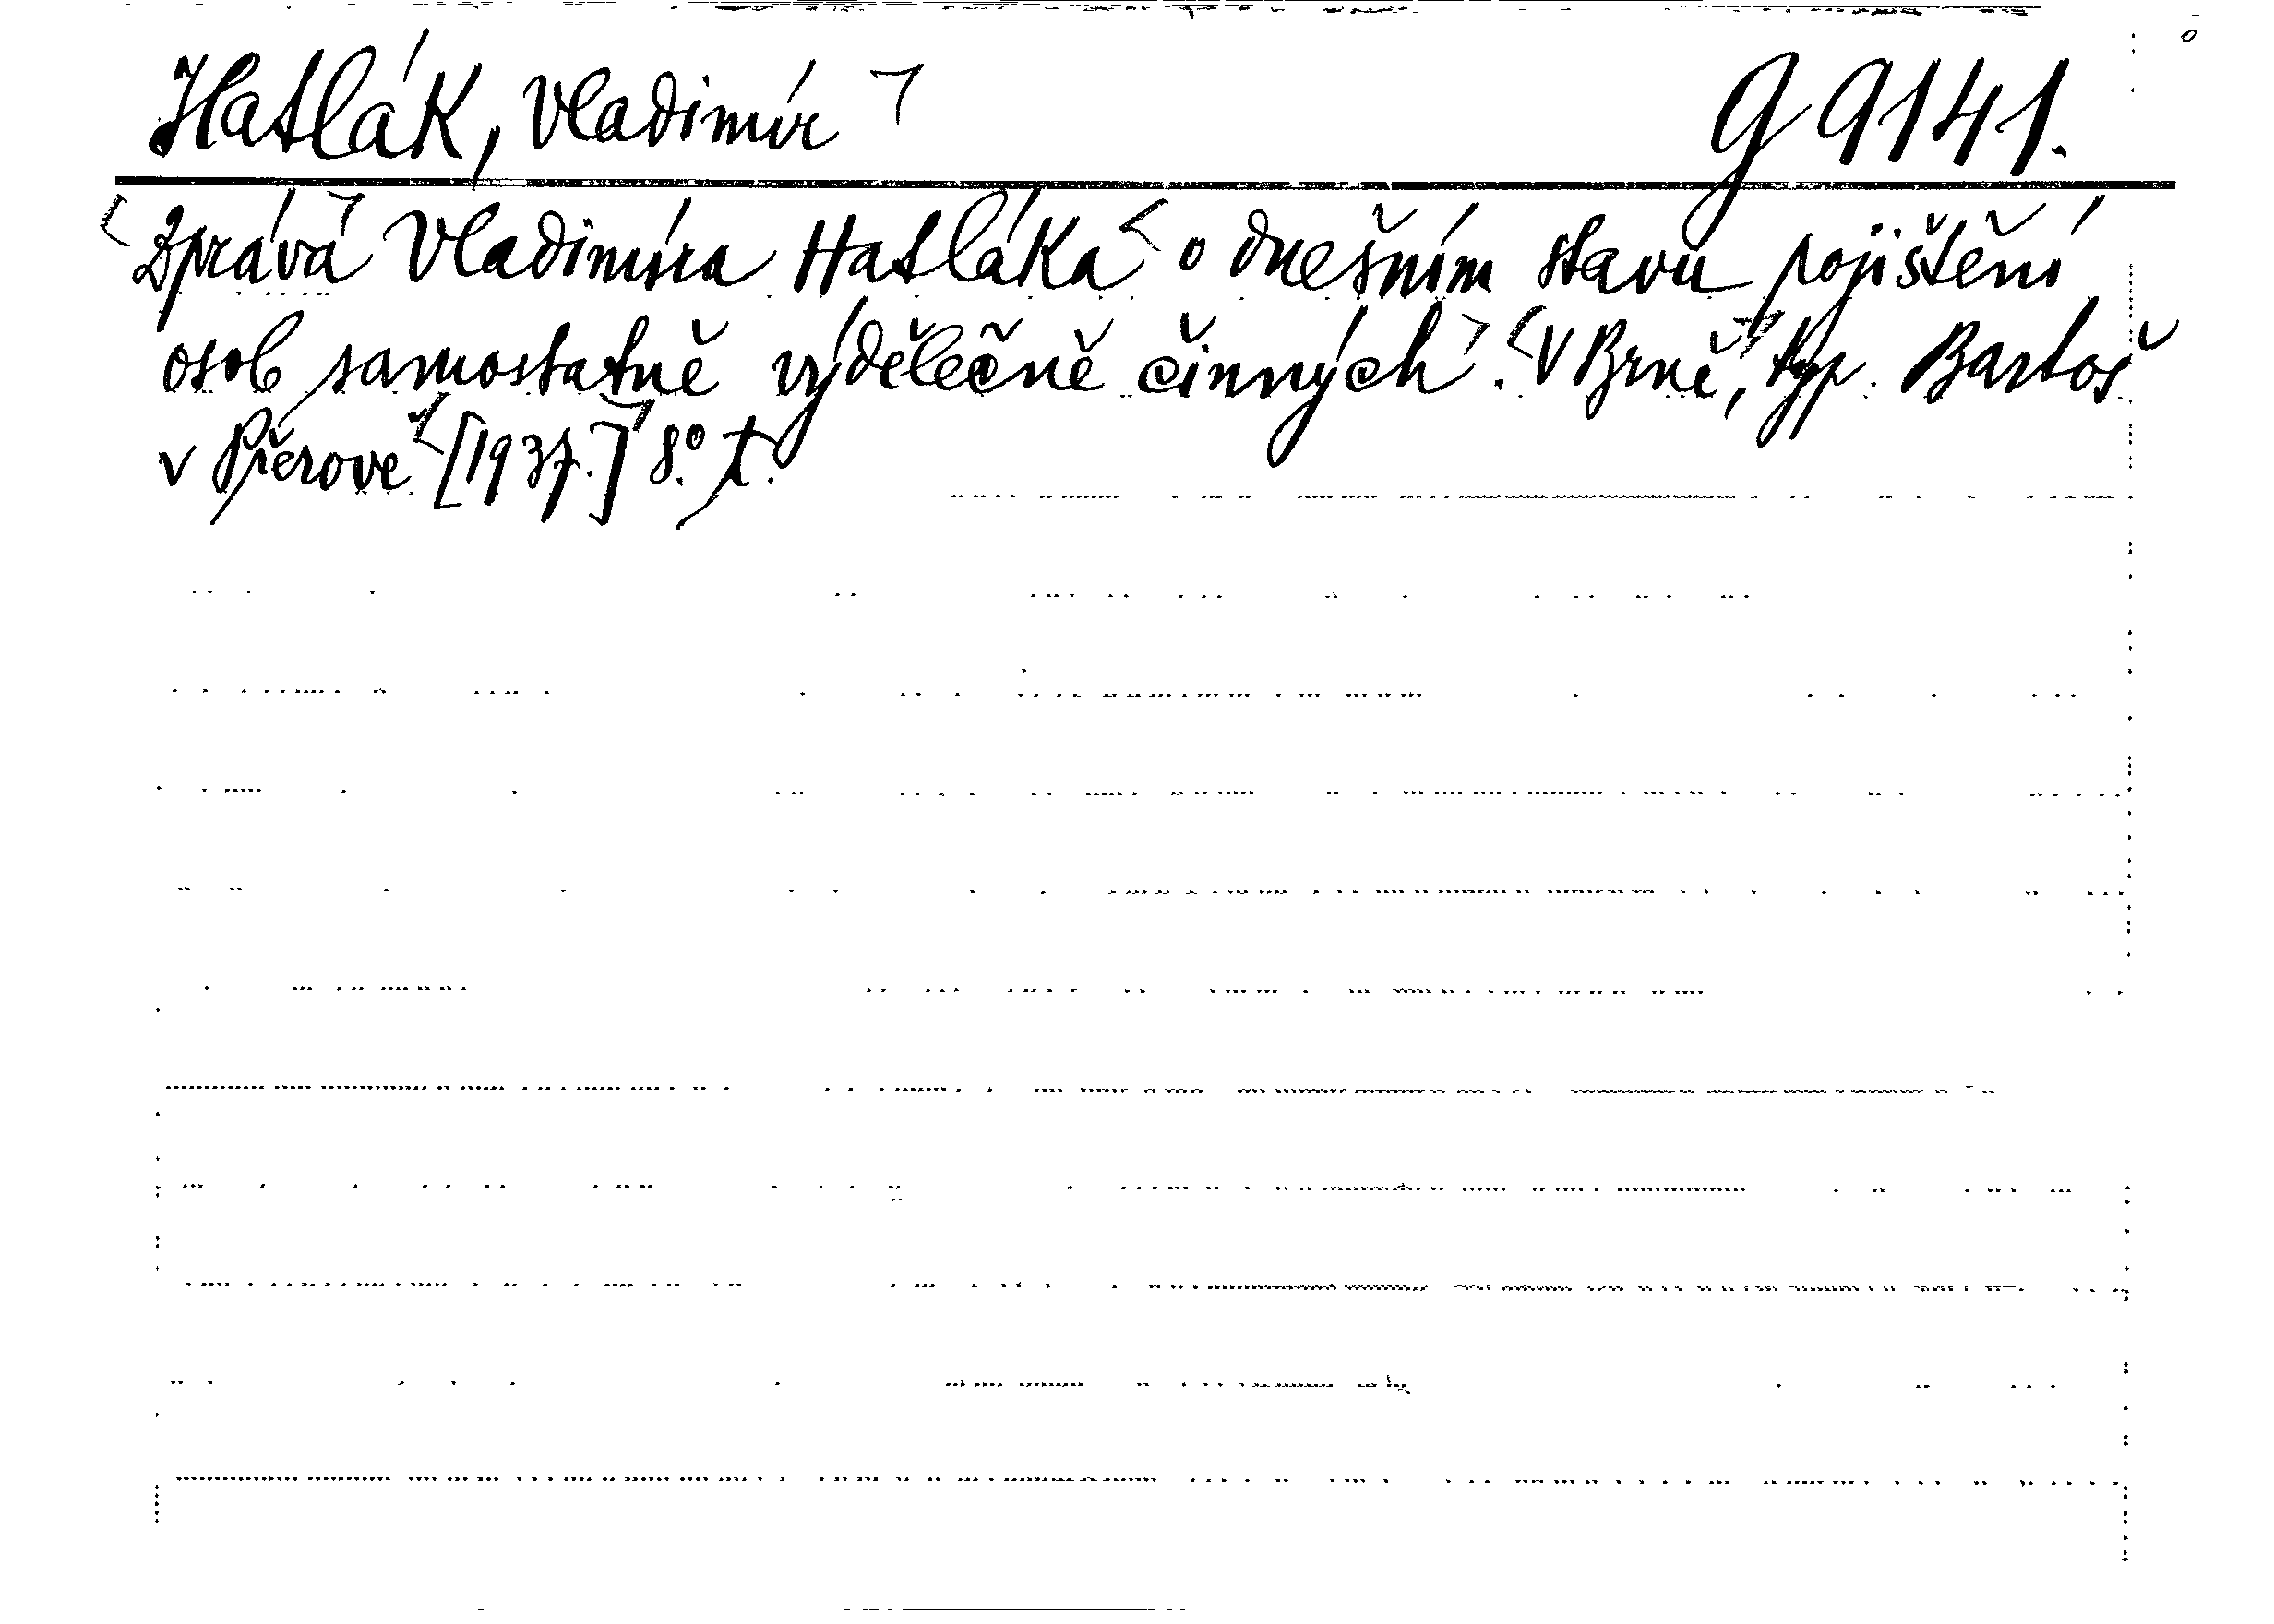 Hatlák, Vladimír G 9141.
Zpráva Vladimíra Hatláka o dnešním stavu pojištění
osob samostatně výdělečně činných. V Brně, typ. Bartoš
v Přerově [1937.] 8.º